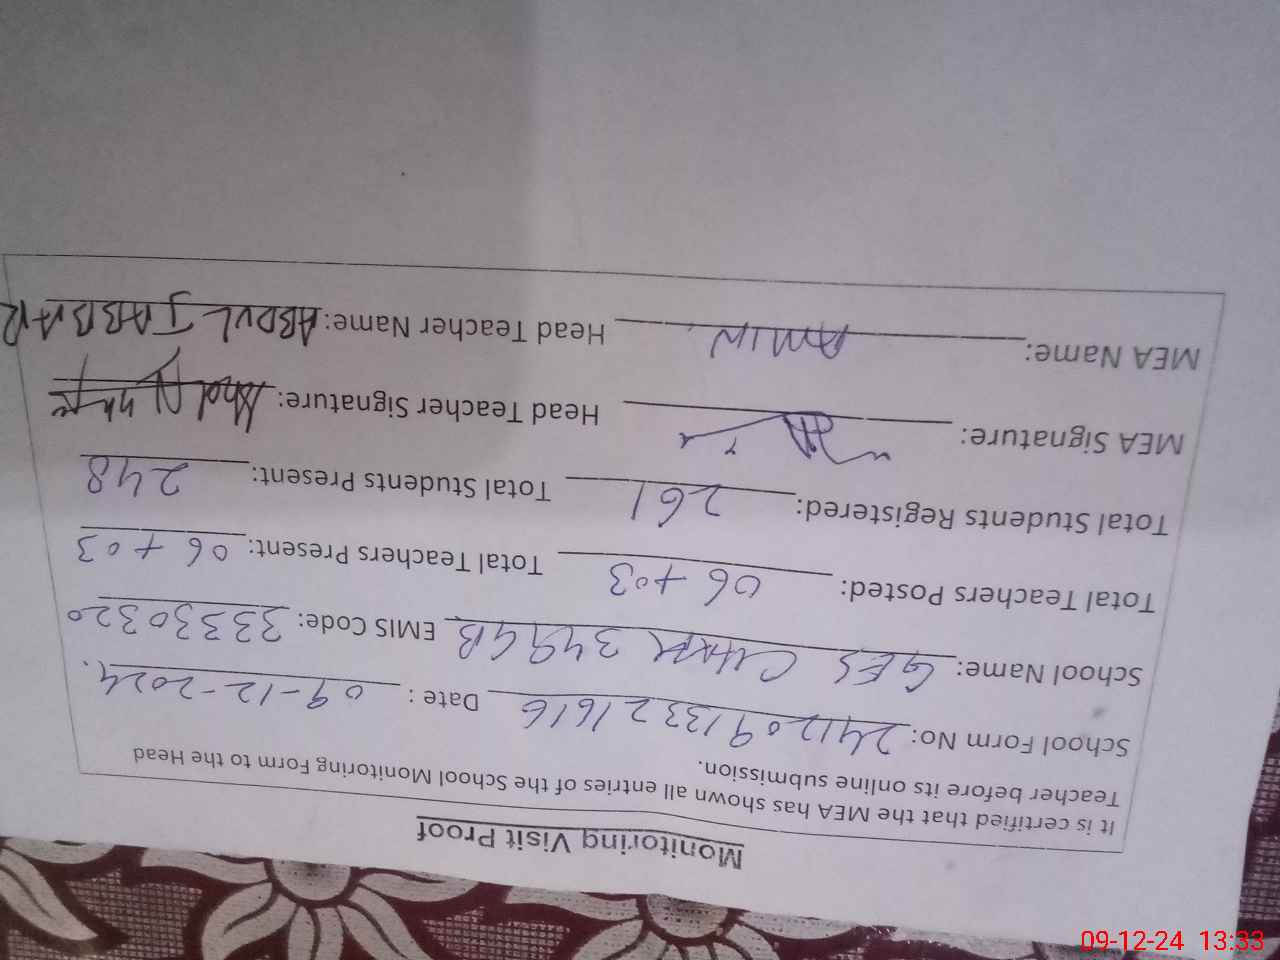 Monitoring Visit Proof
It is certified that the MEA has shown all entries of the School Monitoring Form to the Head
Teacher before its online submission.
School Form No: 241120913321616 Date : 09-12-2024.
School Name: GES CHAK 349 GB EMIS Code: 33330320
Total Teachers Posted: 06 + 03 Total Teachers Present: 06 + 03
Total Students Registered: 261 Total Students Present: 248
MEA Signature: Head Teacher Signature:
MEA Name: AMIN Head Teacher Name: ABDUL JABBAR
09-12-24 13:33